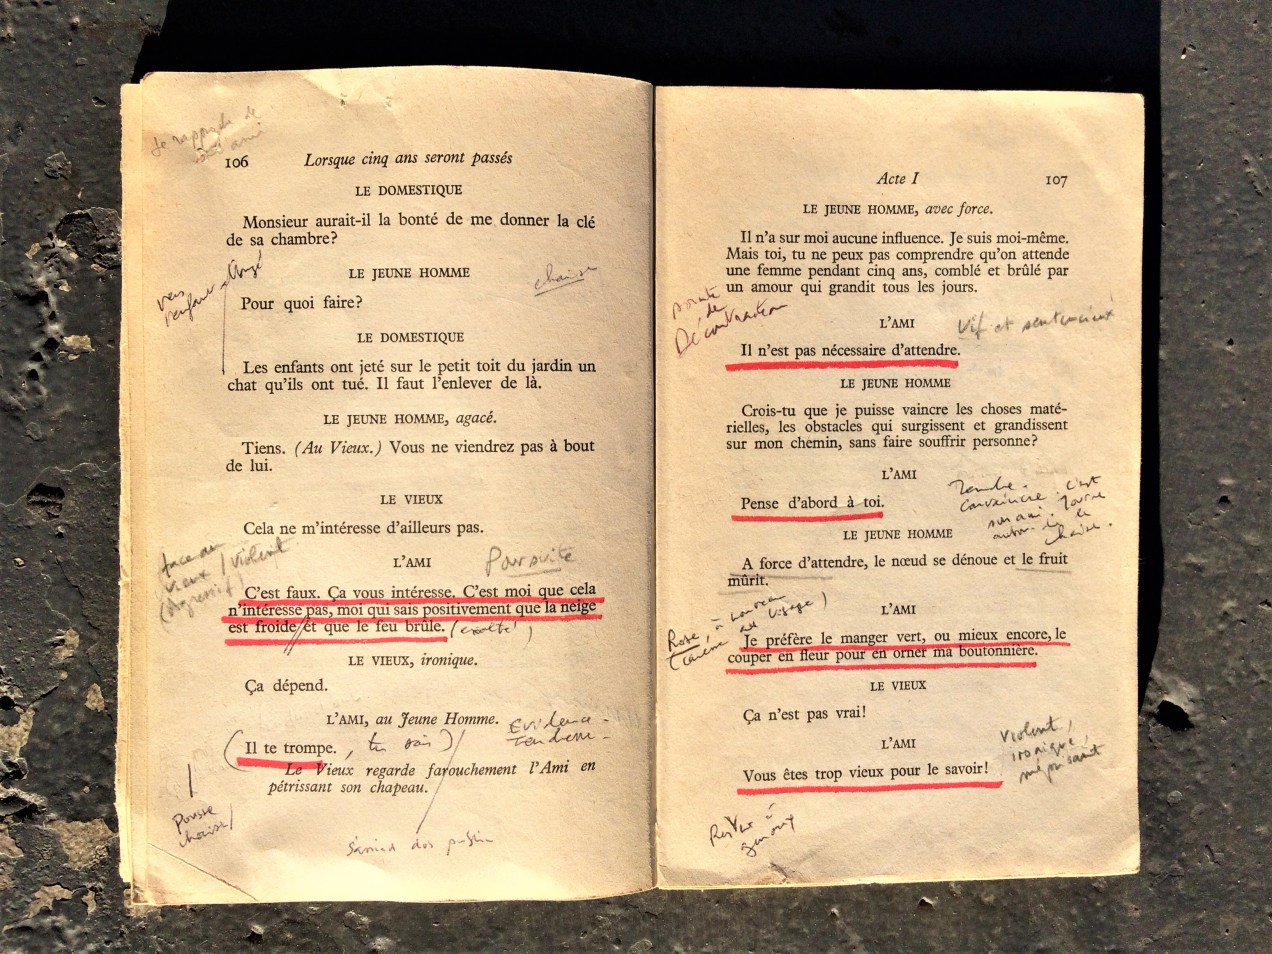 106
Lorsque cinq ans seront passés
LE DOMESTIQUE
Monsieur aurait-il la bonté de me donner la clé
de sa chambre?
LE JEUNE HOMME
chaise
Pour quoi faire?
LE DOMESTIQUE
Les enfants ont jeté sur le petit toit du jardin un
chat qu'ils ont tué. Il faut l'enlever de là.
LE JEUNE HOMME, agacé.
Tiens. (Au Vieux.) Vous ne viendrez pas à bout
de lui.
LE VIEUX
Cela ne m'intéresse d'ailleurs pas.
face au
vieux / violent
(agressif)
L'AMI
Poursuite
C'est faux. Ça vous intéresse. C'est moi que cela
n'intéresse pas, moi qui sais positivement que la neige
est froide // et que le feu brûle. (exalté!)
LE VIEUX, ironique.
Ça dépend.
L'AMI, au Jeune Homme.
Evidence -
tendresse -
(Il te trompe. , tu sais)
Le Vieux regarde farouchement l'Ami en
pétrissant son chapeau.
Pousse
chaise /
Acte I
107
LE JEUNE HOMME, avec force.
Il n'a sur moi aucune influence. Je suis moi-même.
Mais toi, tu ne peux pas comprendre qu'on attende
une femme pendant cinq ans, comblé et brûlé par
un amour qui grandit tous les jours.
pointe
de
Décontraction
L'AMI
Vif et sentencieux
Il n'est pas nécessaire d'attendre.
LE JEUNE HOMME
Crois-tu que je puisse vaincre les choses maté-
rielles, les obstacles qui surgissent et grandissent
sur mon chemin, sans faire souffrir personne?
L'AMI
Tendre.
convaincre. c'est
son ami. Tourne
autour de la
chaise.
Pense d'abord à toi.
LE JEUNE HOMME
A force d'attendre, le nœud se dénoue et le fruit
mûrit.
L'AMI
Rose, à nouveau
(caresse au visage)
Je préfère le manger vert, ou mieux encore, le
couper en fleur pour en orner ma boutonnière.
LE VIEUX
Ça n'est pas vrai!
L'AMI
violent,
ironique,
méprisant
Vous êtes trop vieux pour le savoir!